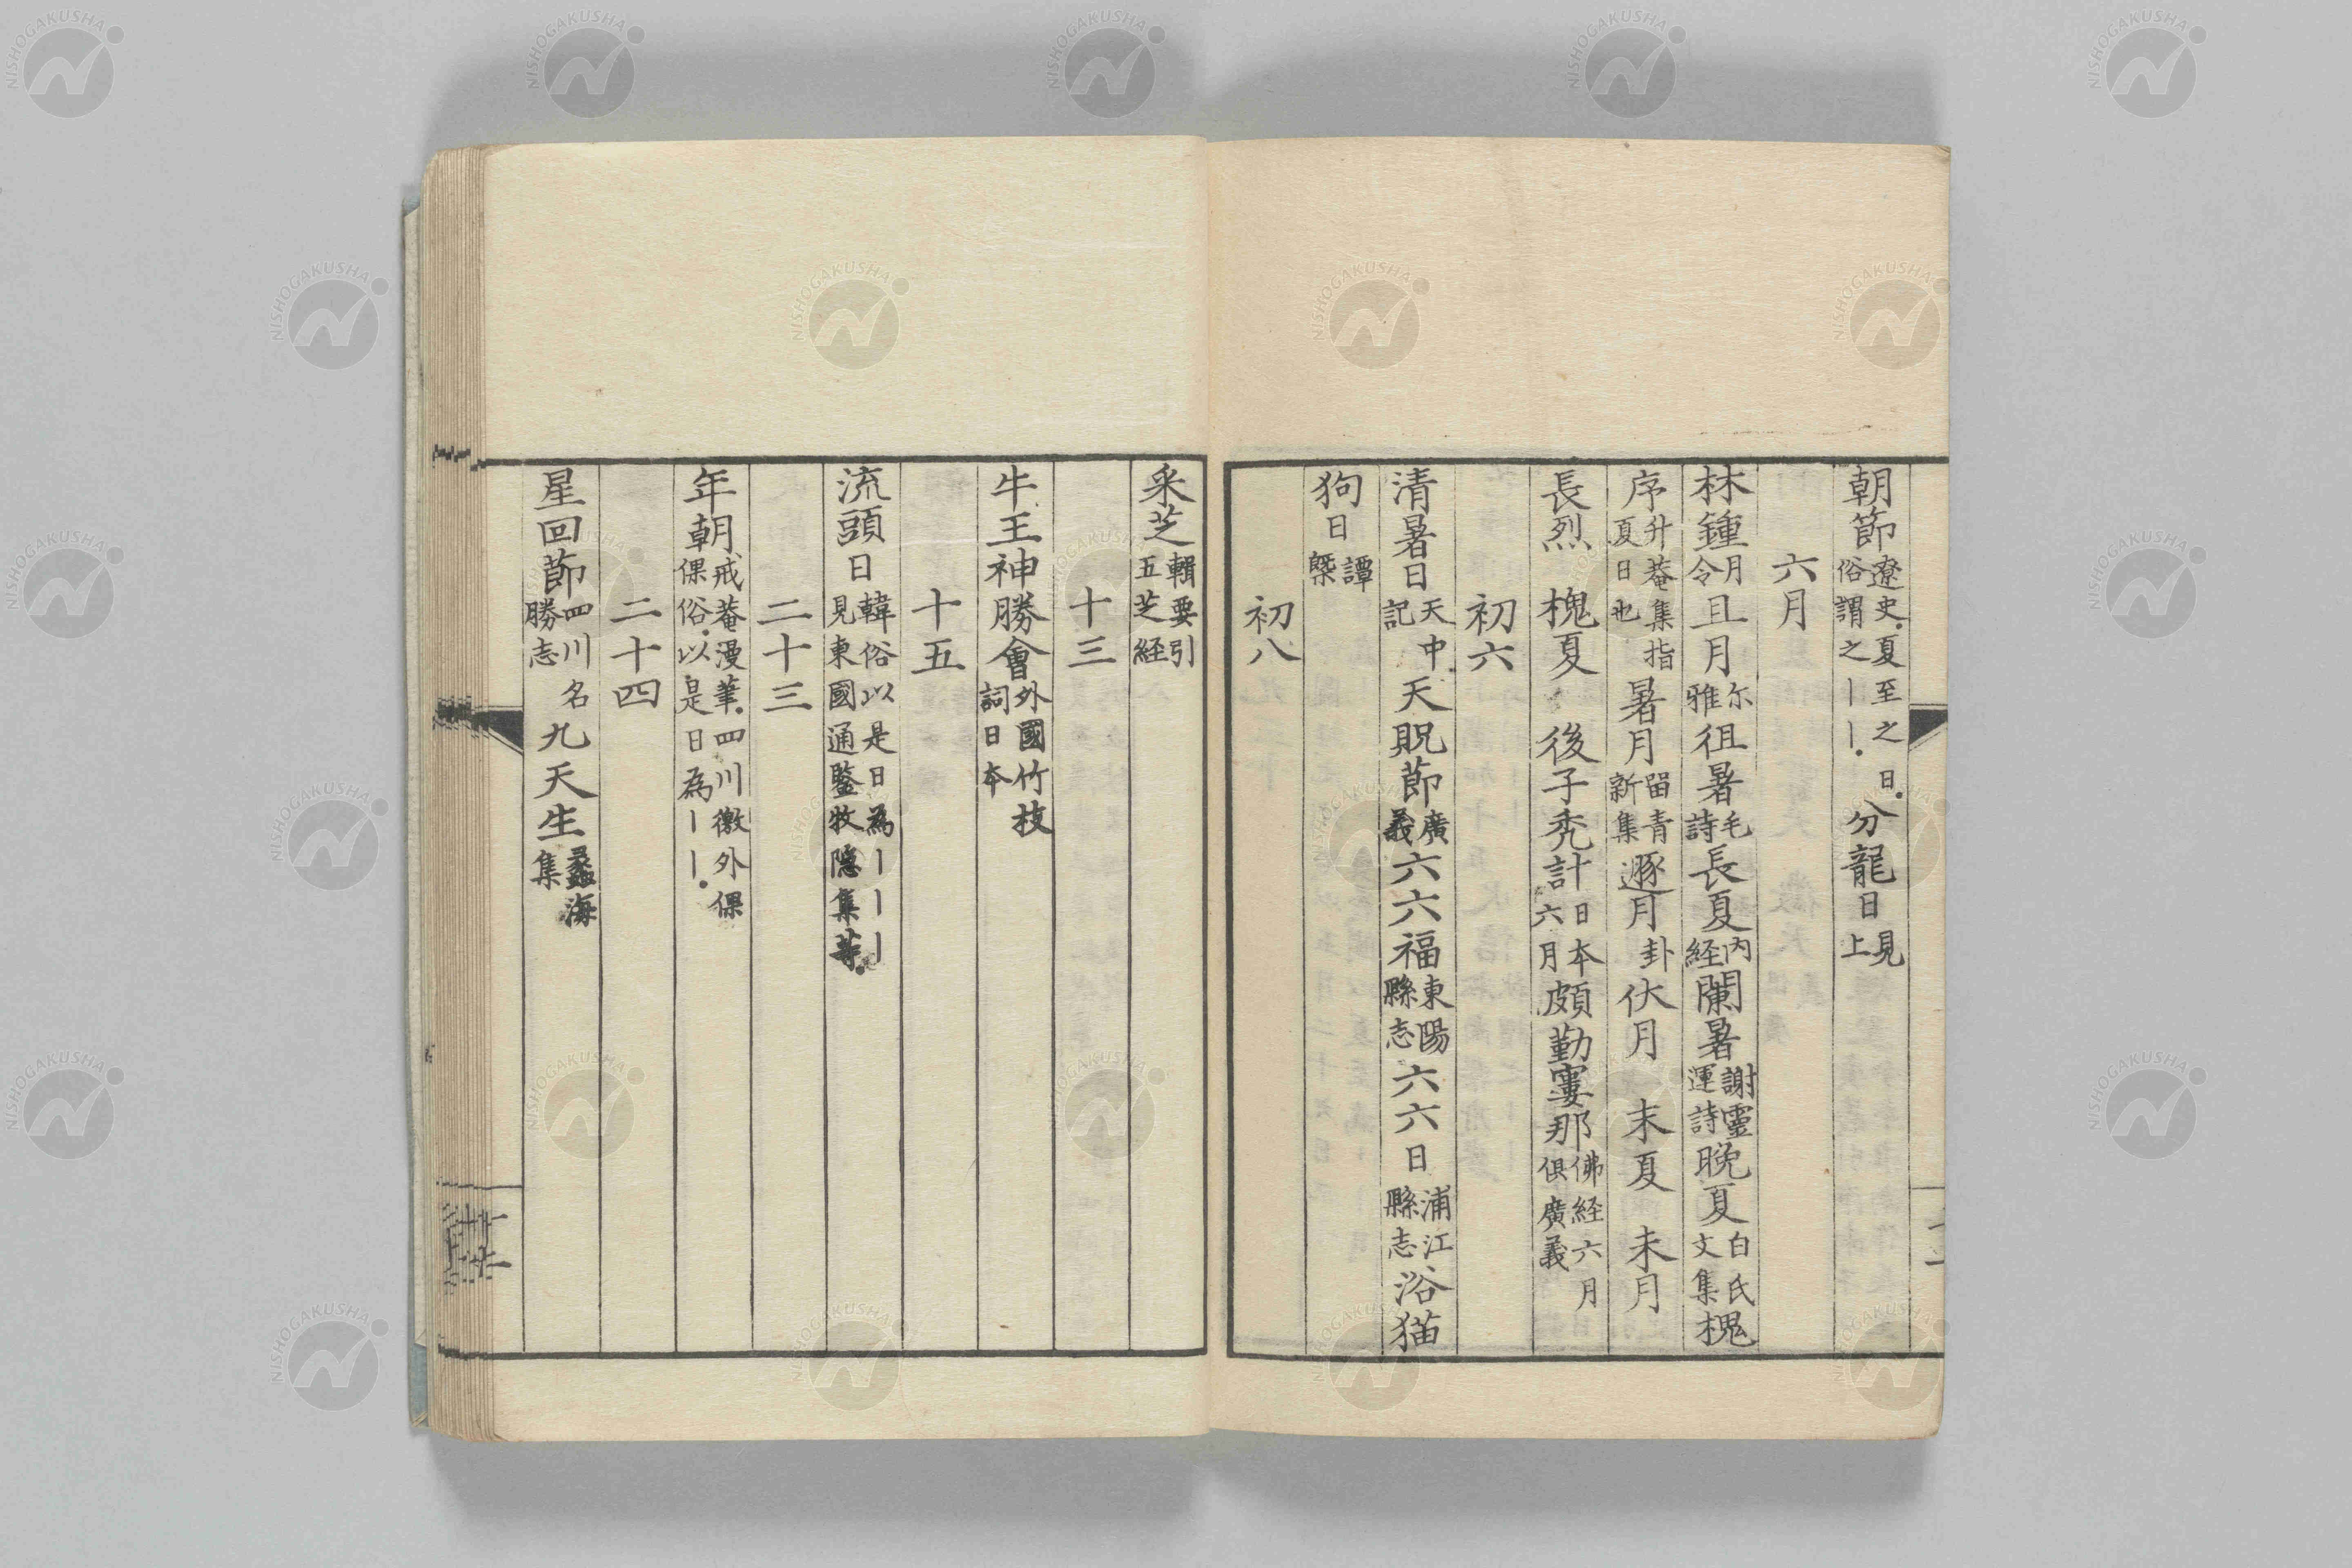 朝節遼史夏至之日俗謂之丨丨分龍日見上
六月
林鍾月令且月尓雅徂暑毛詩長夏內経闌暑謝靈運詩晩夏白氏文集槐
序升菴集指夏日也暑月留青新集遯月卦伏月　末夏　未月
長烈　槐夏　後子秃計日本六月頗勤窶那佛経六月俱廣義
初六
清暑日天中記天貺節廣義六六福東陽縣志六六日浦江縣志浴猫
狗日譚槩
初八
采芝輯要引五芝経
十三
牛王神勝會外國竹枝詞日本
十五
流頭日韓俗以是日為丨丨丨見東國通鑒牧隱集等
二十三
年朝戒菴漫筆四川徼外倮倮俗以是日為丨丨
二十四
星回節四川名勝志九天生蠡海集